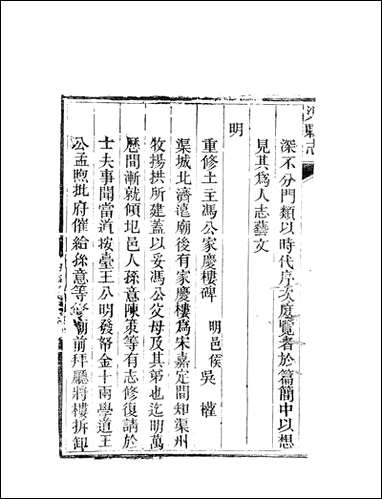 深不分門類以時代序次庭覽者於篇簡中以想
見其爲人志藝文
明
重修土主馮公家慶樓碑 明邑侯 吳 權
渠城北濟遠廟後有家慶樓爲宋嘉定間知渠州
牧揚拱所建蓋以妥馮公父母及其弟也迄明萬
歷間漸就傾圯邑人孫意陳策等有志修復請於
士夫事聞當道按臺王公明發帑金十兩學道王
公孟煦批府催給孫意等修廟前拜廳將樓拆卸